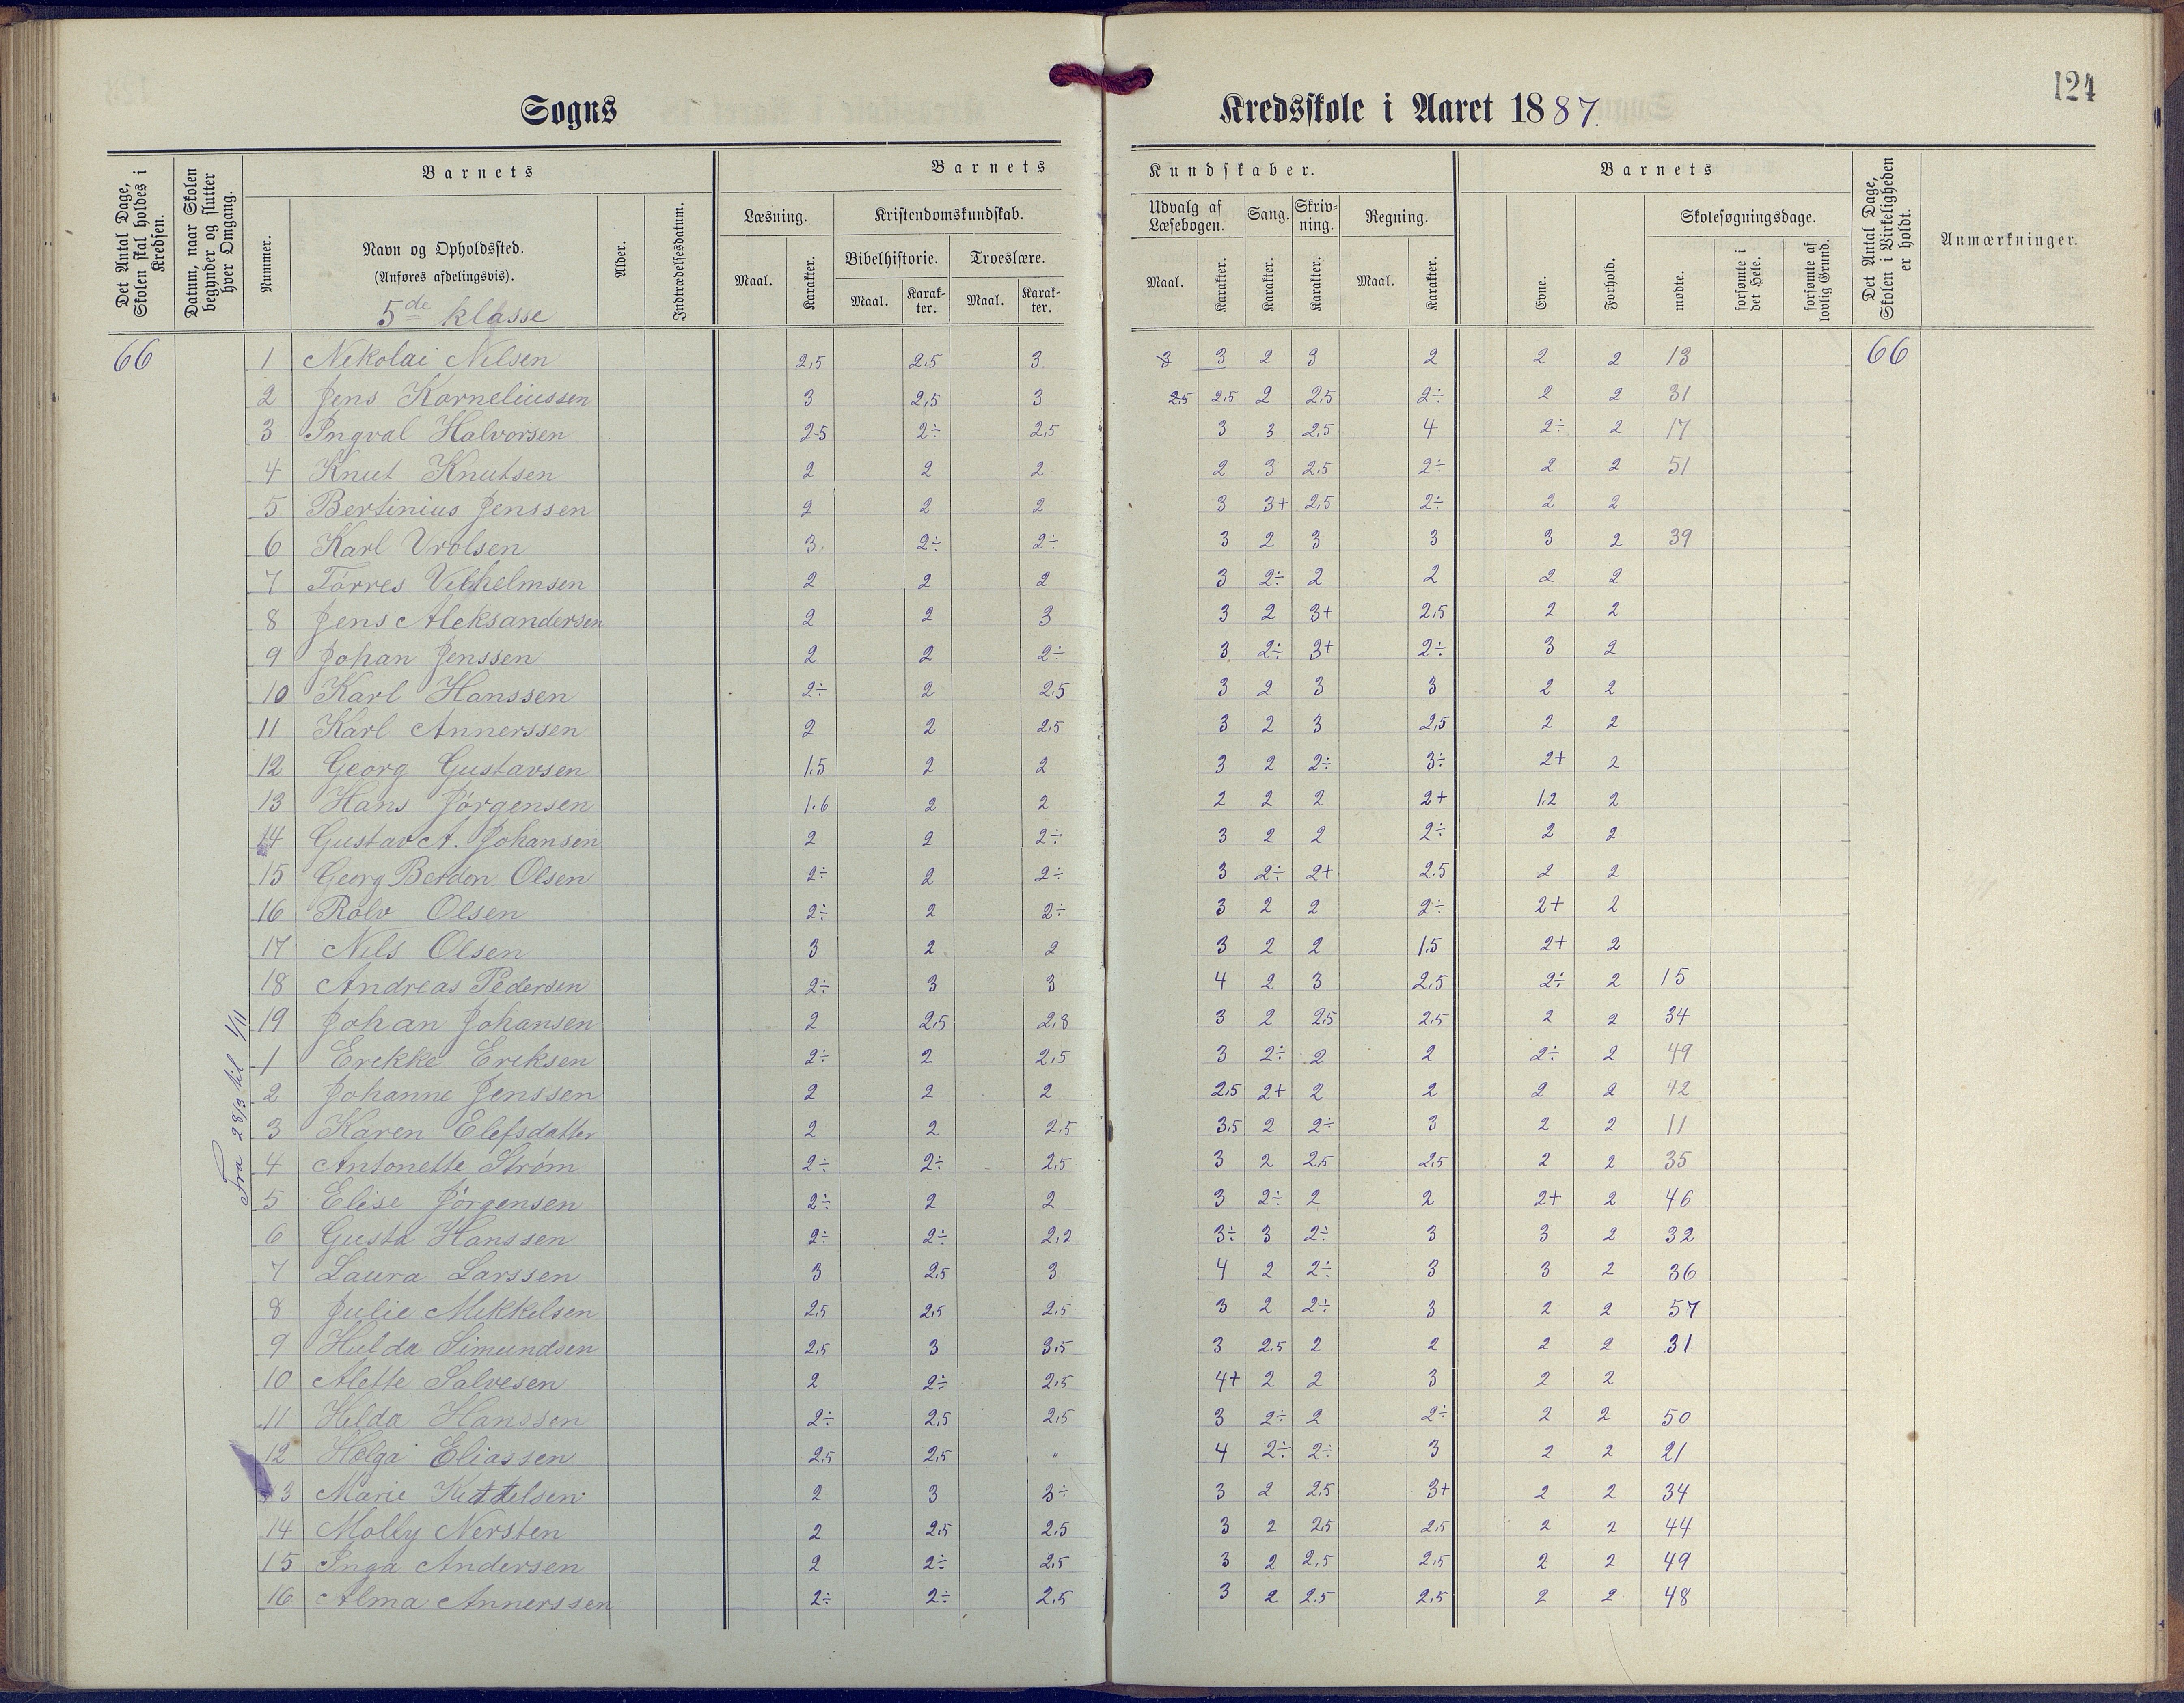 124
Sogns Kredsskole i Aaret 1887.
Det Antal Dage, Skolen skal holdes i Kredsen.
Datum, naar Skolen begynder og slutter hver Omgang.
Barnets
Nummer.
Navn og Opholdssted.
(Anføres afdelingsvis).
5de klasse
Alder.
Indtrædelsesdatum.
Barnets Kundskaber.
Læsning.
Maal. Karakter.
Kristendomskundskab.
Bibelhistorie. Troeslære.
Maal. Karakter. Maal. Karakter.
Udvalg af Læsebogen.
Maal. Karakter.
Sang.
Karakter.
Skrivning.
Karakter.
Regning.
Maal. Karakter.
Barnets
Evne.
Forhold.
Skolesøgningsdage.
mødte.
forsømte i det Hele.
forsømte af lovlig Grund.
Det Antal Dage, Skolen i Virkeligheden er holdt.
Anmærkninger.
66 1 Nikolai Nilsen 2,5 2,5 3 3 3 2 3 2 2 2 13 66
2 Jens Korneliussen 3 2,5 3 2,5 2,5 2 2,5 2÷ 2 2 31
3 Ingval Halvorsen 2,5 2÷ 2,5 3 3 2,5 4 2÷ 2 17
4 Knut Knutsen 2 2 2 2 3 2,5 2÷ 2 2 51
5 Bertinius Jenssen 2 2 2 3 3+ 2,5 2÷ 2 2
6 Karl Vrolsen 3 2÷ 2÷ 3 2 3 3 3 2 39
7 Tørres Vilhelmsen 2 2 2 3 2÷ 2 2 2 2
8 Jens Aleksandersen 2 2 3 3 2 3+ 2,5 2 2
9 Johan Jenssen 2 2 2÷ 3 2÷ 3+ 2÷ 3 2
10 Karl Hanssen 2÷ 2 2,5 3 2 3 3 2 2
11 Karl Annerssen 2 2 2,5 3 2 3 2,5 2 2
12 Georg Gustavsen 1,5 2 2 3 2 2÷ 3÷ 2+ 2
13 Hans Jørgensen 1.6 2 2 2 2 2 2+ 1.2 2
14 Gustav A. Johansen 2 2 2÷ 3 2 2 2÷ 2 2
15 Georg Berdon Olsen 2÷ 2 2÷ 3 2÷ 2+ 2.5 2 2
16 Rolv Olsen 2÷ 2 2÷ 3 2 2 2÷ 2+ 2
17 Nils Olsen 3 2 2 3 2 2 1.5 2+ 2
18 Andreas Pedersen 2÷ 3 3 4 2 3 2,5 2÷ 2 15
19 Johan Johansen 2 2,5 2,8 3 2 2,5 2,5 2 2 34
Fra 28/3 til 1/11
1 Erikke Eriksen 2÷ 2 2,5 3 2÷ 2 2 2÷ 2 49
2 Johanne Jenssen 2 2 2 2,5 2+ 2 2 2 2 42
3 Karen Elefsdatter 2 2 2,5 3,5 2 2÷ 3 2 2 11
4 Antonette Strøm 2÷ 2÷ 2,5 3 2 2,5 2,5 2 2 35
5 Elise Jørgensen 2÷ 2 2 3 2÷ 2 2 2+ 2 46
6 Gusta Hanssen 2÷ 2÷ 2,2 3÷ 3 2÷ 3 3 2 32
7 Laura Larssen 3 2,5 3 4 2 2÷ 3 3 2 36
8 Julie Mikkelsen 2,5 2,5 2,5 3 2 2÷ 3 2 2 57
9 Hulda Simundsen 2,5 3 3,5 3 2.5 2 2 2 2 31
10 Alette Salvesen 2 2÷ 2,5 4+ 2 2 3 2 2
11 Hilda Hanssen 2÷ 2,5 2,5 3 2÷ 2 2÷ 2 2 50
12 Helga Eliassen 2,5 2,5 " 4 2÷ 2÷ 3 2 2 21
13 Marie Kittelsen 2 3 3÷ 3 2 2,5 3+ 2 2 34
14 Molly Nersten 2 2,5 2,5 3 2 2,5 2,5 2 2 44
15 Inga Andersen 2 2÷ 2,5 3 2 2,5 2,5 2 2 49
16 Alma Annerssen 2÷ 2÷ 2,5 3 2 2.5 2,5 2 2 48